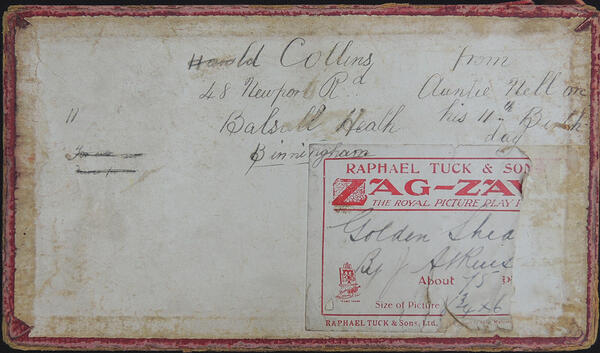 Harold Collins
48 Newport Rd
Balsall Heath
Birmingham
from
Auntie Nell on
his 11th Birth
day
11
RAPHAEL TUCK & SON
ZAG-ZAW
THE ROYAL PICTURE
Golden Shea
By J
About 75
Size of Picture
RAPHAEL TUCK & Sons, Ltd.